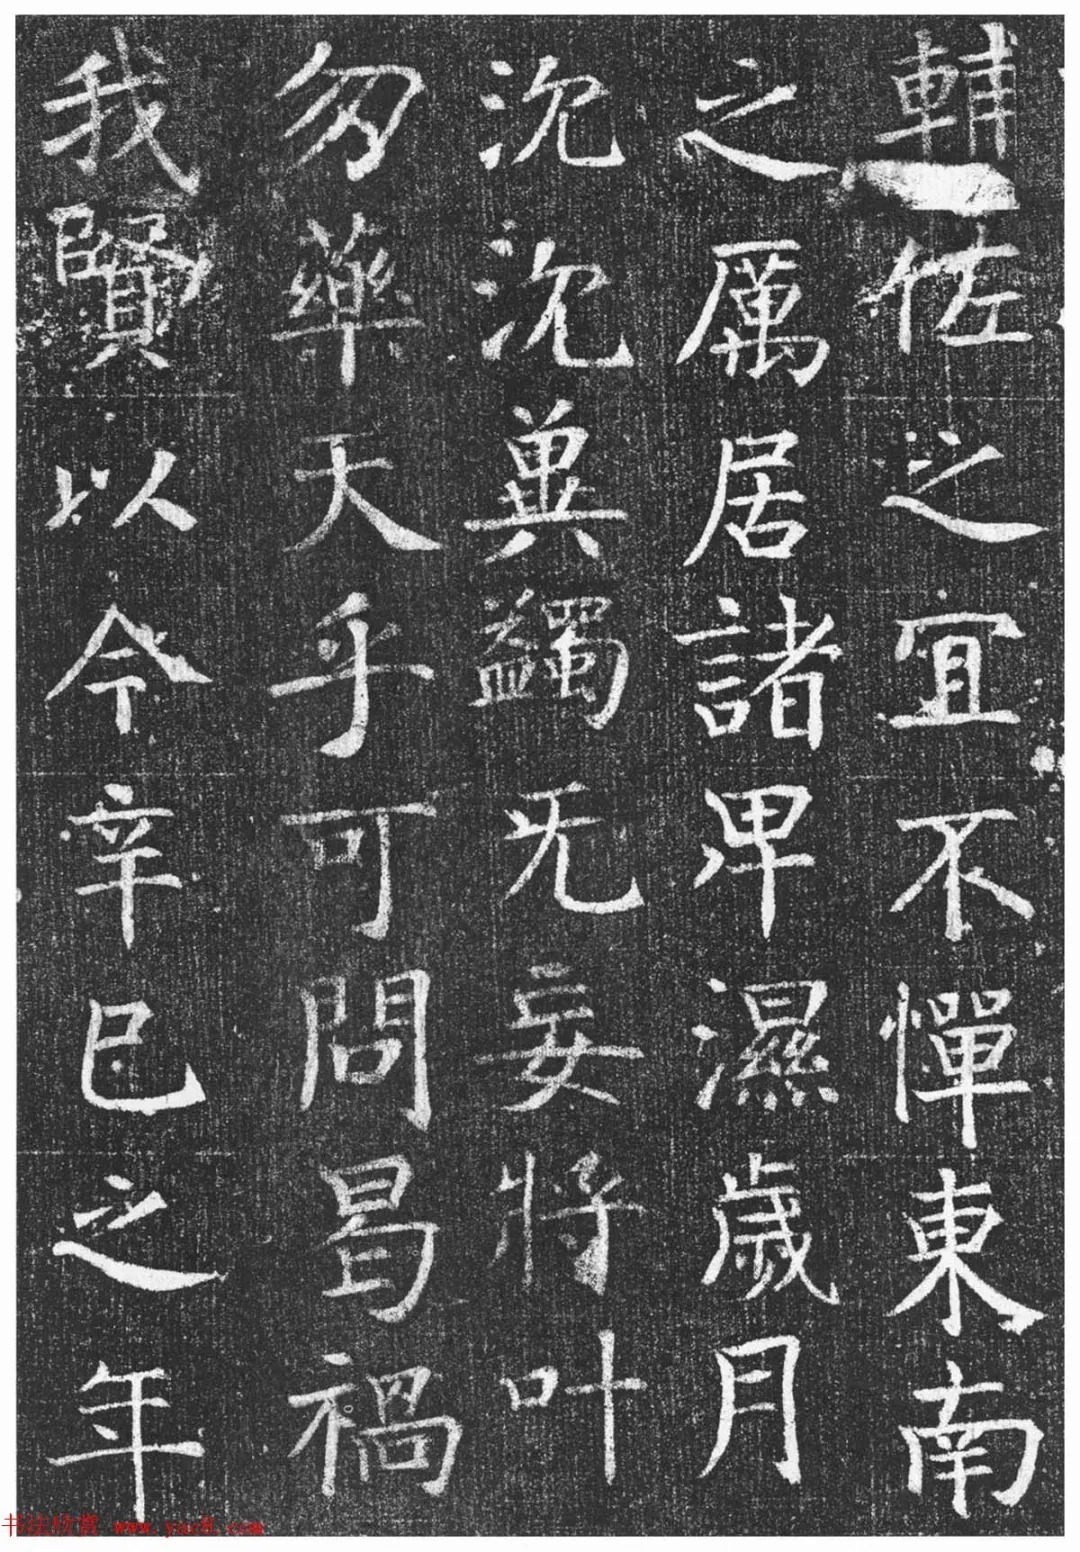 輔佐之宜不憚東南
之厲居諸卑濕歲月
沉沉冀蠲无妄將叶
勿藥天乎可問曷禍
我賢以今辛巳之年
书法欣赏 www.yac8.com